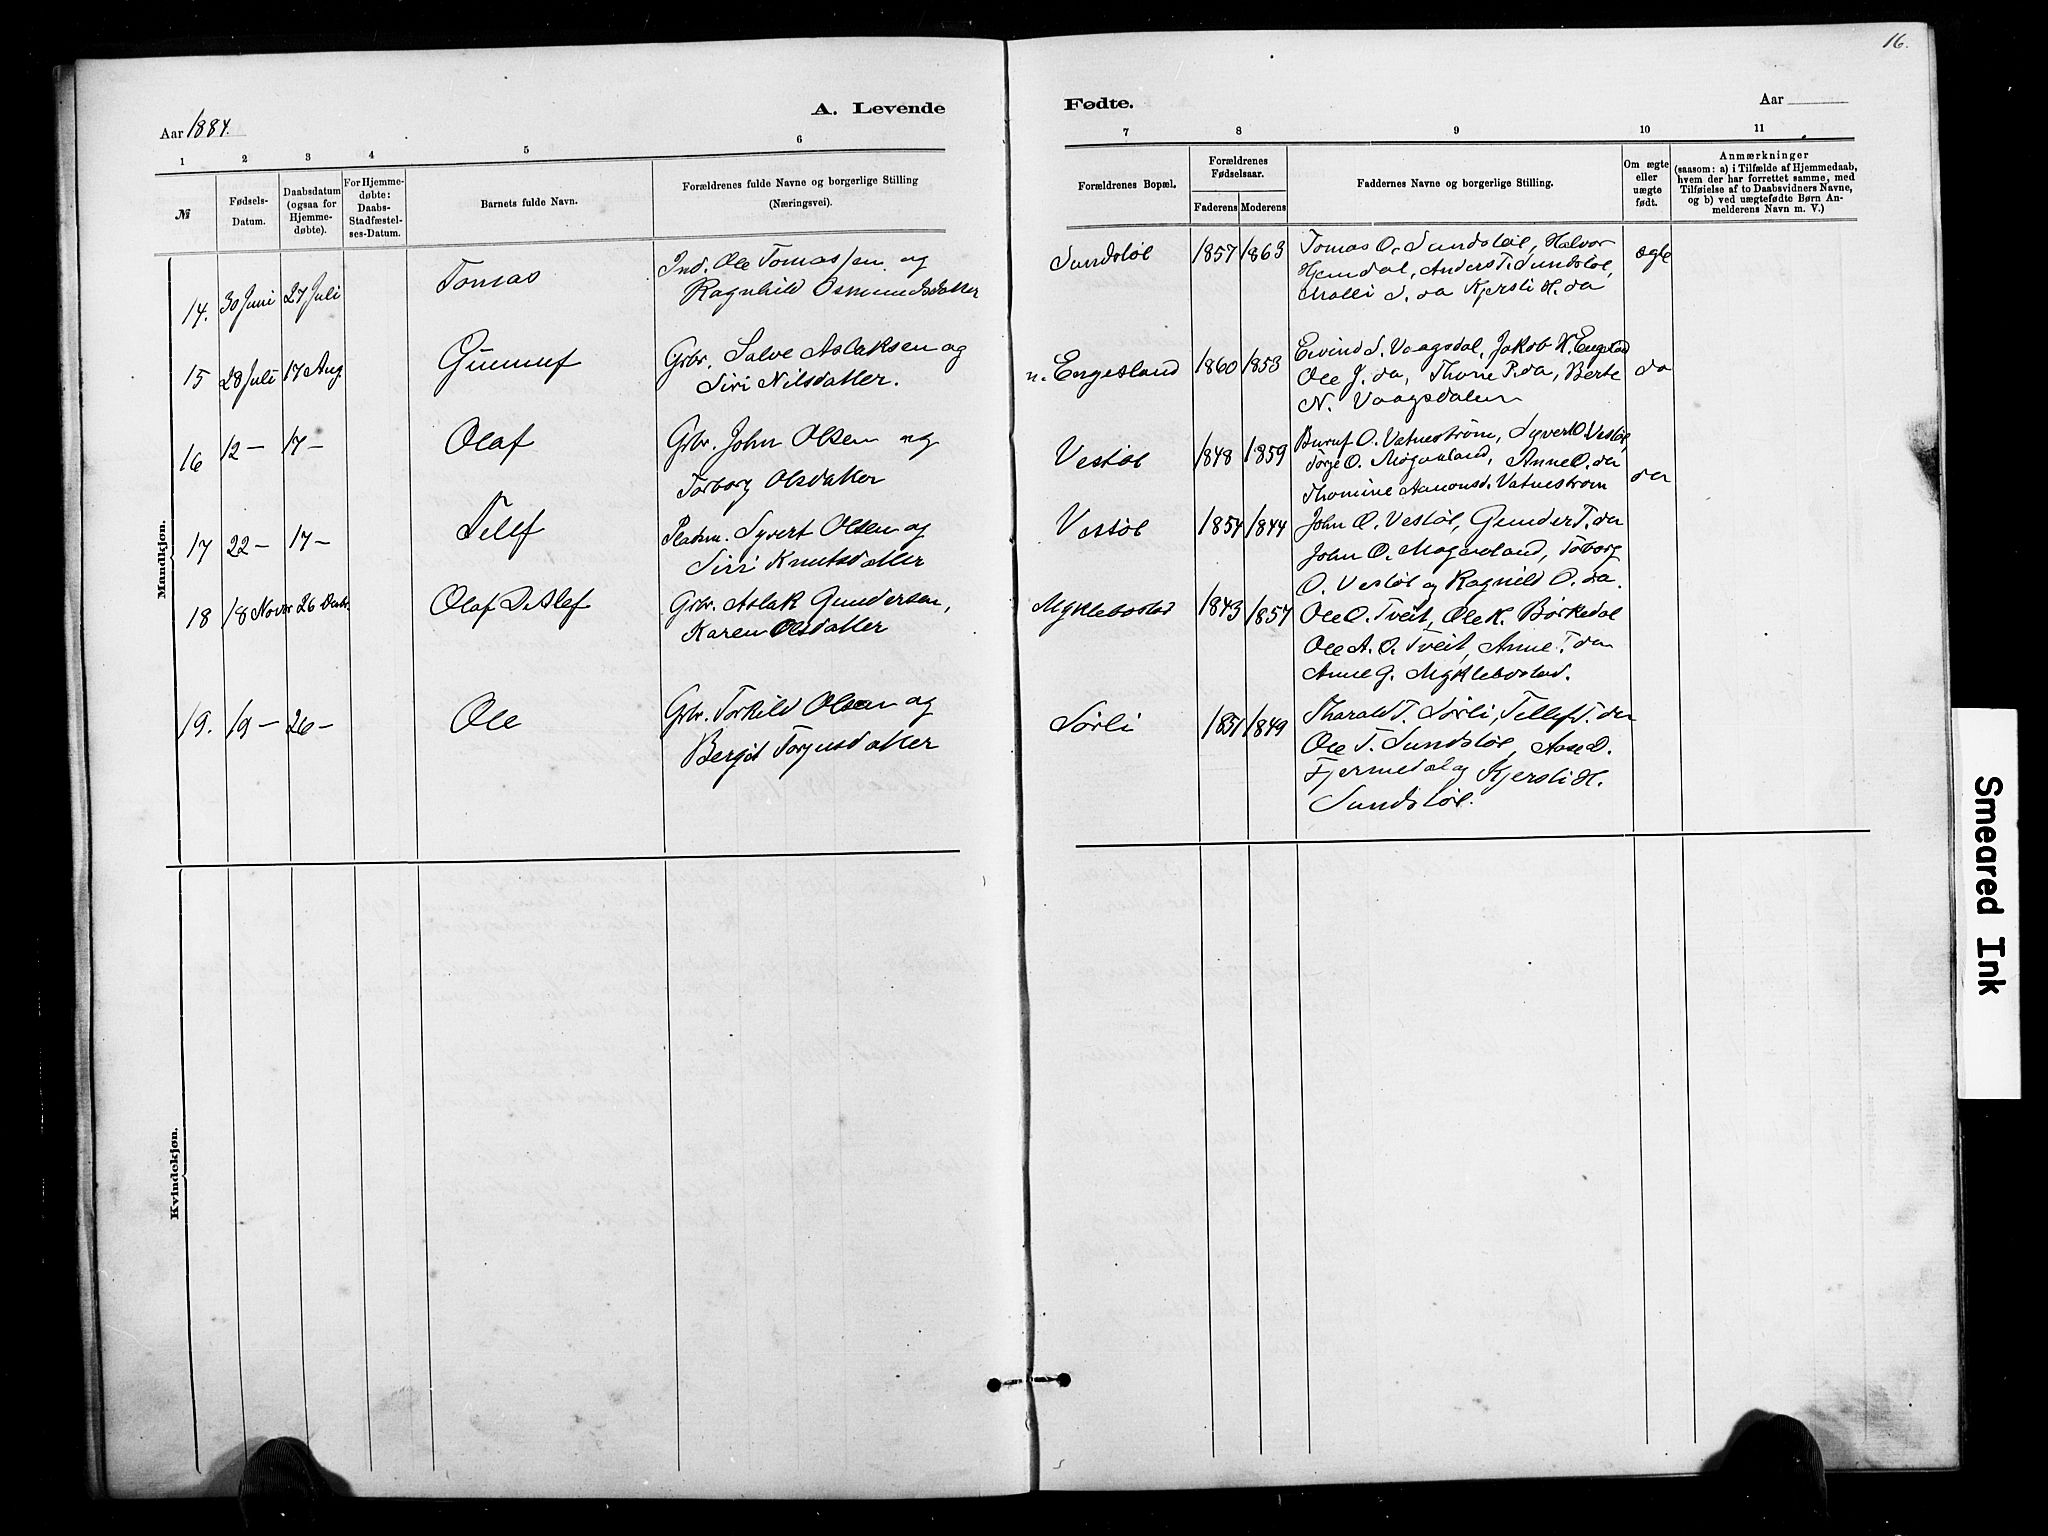 16.
Aar 1884.
A. Levende
Fødte.
Aar
1 2 3 4 5 6 7 8 9 10 11
№
Fødsels-
Datum.
Daabsdatum
(ogsaa for
Hjemme-
døbte).
For Hjemme-
døbte:
Daabs-
Stadfæstel-
ses-Datum.
Barnets fulde Navn.
Forældrenes fulde Navne og borgerlige Stilling
(Næringsvei).
Forældrenes Bopæl.
Forældrenes
Fødselsaar.
Faderens Moderens
Faddernes Navne og borgerlige Stilling.
Om ægte
eller
uægte
født.
Anmærkninger
(saasom: a) i Tilfælde af Hjemmedaab,
hvem der har forrettet samme, med
Tilføielse af to Daabsvidners Navne,
og b) ved uægtefødte Børn An-
melderens Navn m. V.)
Mandkjøn.
14. 30 Juni 27 Juli Tomas
Ind. Ole Tomassen og
Ragnhild Osmundsdatter
Sundsløl 1857 1863
Tomas O. Sundsløl, Halvor
Hjemdal, Anders T. Sundsløl,
Malli S. da Kjersti H. da
ægte
15 28 Juli 17 Aug. Gunnuf
Grbr. Salve Aslaksen og
Siri Nilsdatter.
n. Engesland 1860 1853
Eivind S. Vaagsdal, Jakob H. Engeslad
Ole J. da, Thone P. da, Berte
N. Vaagsdalen
do
16 12 — 17 — Olaf
Grbr. John Olsen og
Torborg Olsdatter
Vestøl 1848 1859
O. Vatnestrøm, Syvert O. Vestøl,
Torje O. Mogaeland, Anne O. da
Thomine Aanonsd. Vatnestrøm
da
17 22 — 17 — Tellef
Pladsm. Syvert Olsen og
Siri Knutsdatter
Vestøl 1854 1844
John O. Vestøl, Gunder T. da
John O. Mogaeland, Toborg
O. Vestøl og Ragnild O. da.
18 18 Novbr 26 Decbr. Olaf Detlef
Grbr. Aslak Gundersen,
Karen Olsdatter
Myklebostad 1843 1857
Ole O. Tveit, Ole K. Børkedal
Ole A. O. Tveit, Anne T. da
Anne G. Myklebostad.
19. 19 — 26 — Ole
Grbr. Torkild Olsen og
Bergit Torjusdatter
Sørli 1851 1849
Tharald T. Sørli, Tellef T. da
Ole T. Sundsløl, Aase O.
Fjermedal og Kjersti H.
Sundsløl.
Kvindekjøn.
Smeared Ink